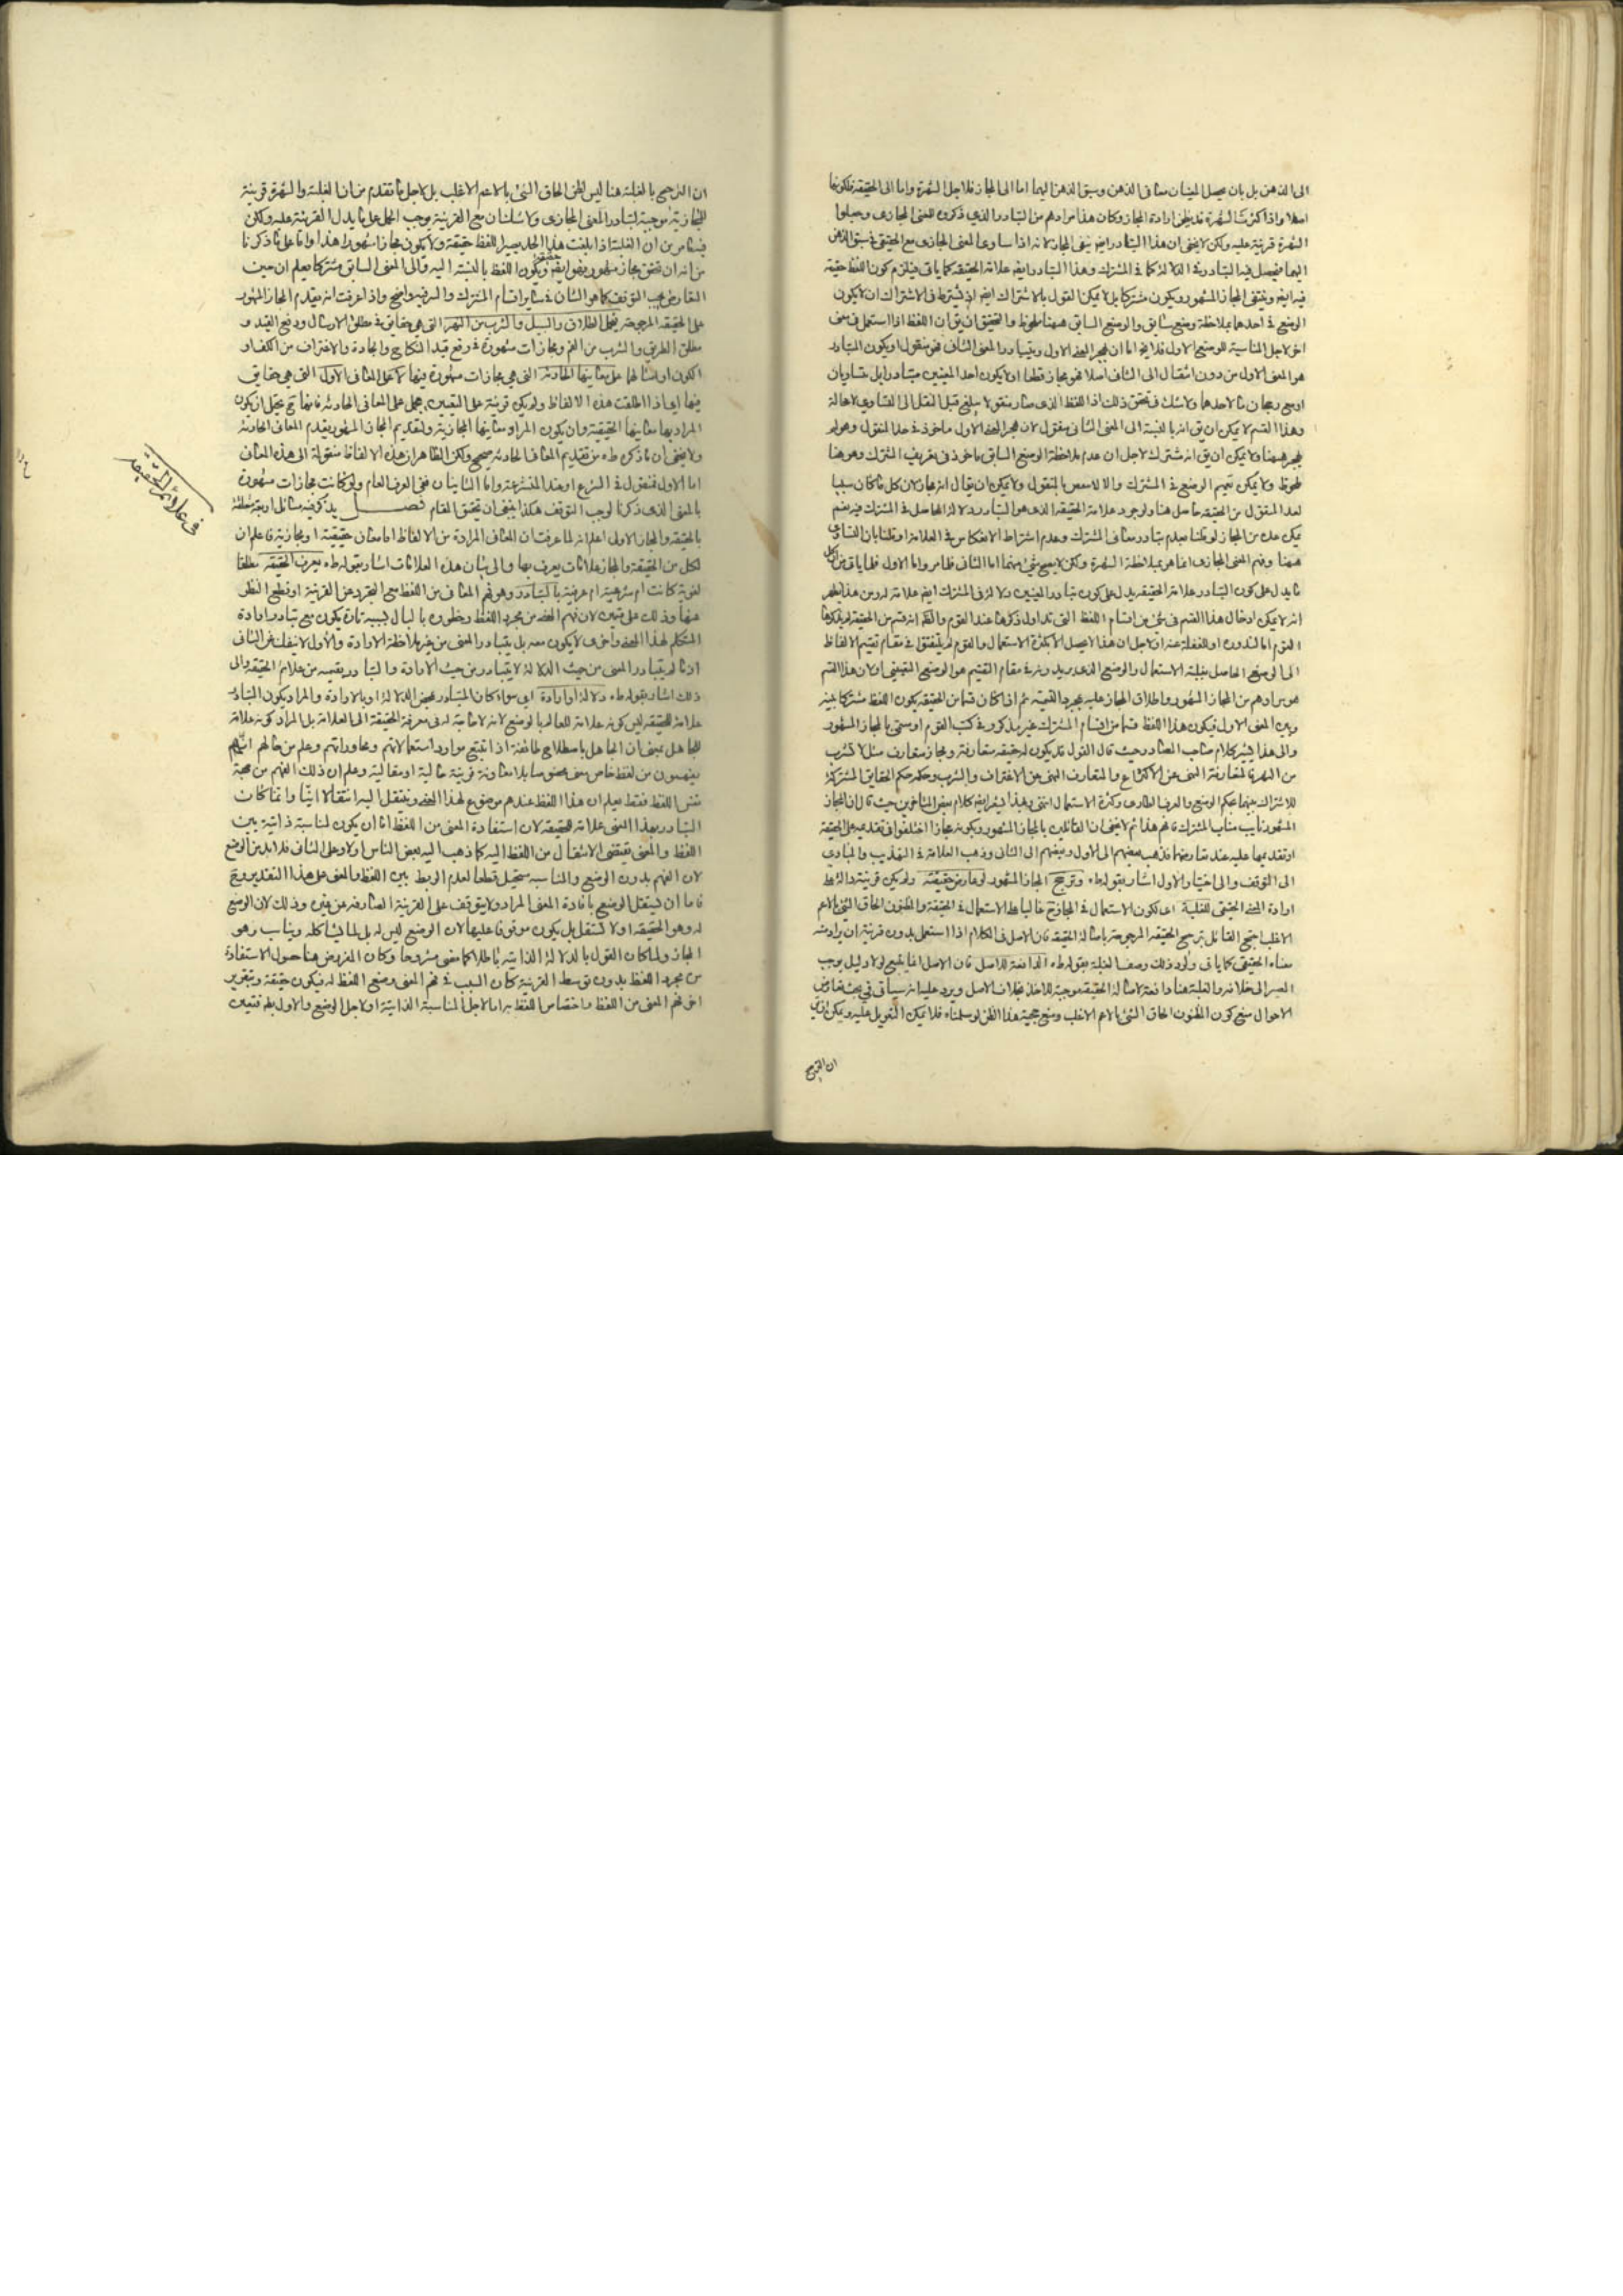 الى الذهن بل بان يحصل المعنيان معا فى الذهن وسبق الذهن اليهما اما الى المجاز فلاجل الشهرة واما الى الحقيقة فلكونها
اصلا واذا كثرت الشهرة قد يظن ارادة المجاز وكان هذا مرادهم من التبادر الذي ذكروه للمعنى المجازى وجعلوا
الشهرة قرينة عليه ولكن لا يخفى ان هذا التبادر ايض ينفى المجاز لانه اذا ساوى المعنى المجازى مع الحقيقى فى سبق الذهن
اليها فيحصل فيه التبادر فى الدلالة كما فى المشترك وهذا التبادر ايض علامة الحقيقة كما ياتى فيلزم كون اللفظ حقيقة
فيه ايض وينتفى المجاز المشهور ويكون مشتركا بل لا يمكن القول بالاشتراك ايض اذ يشترط فى الاشتراك ان لا يكون
الوضع فى احدهما بملاحظة وضع سابق والوضع السابق ههنا ملحوظ والتحقيق ان يق ان اللفظ اذا استعمل فى معنى
اخر لاجل المناسبة للوضع الاول فلا يخ اما ان يهجر المعنى الاول ويتبادر المعنى الثانى فهو منقول او يكون المتبادر
هو المعنى الاول من دون انتقال الى الثانى اصلا فهو مجاز قطعا او لا يكون احد المعنيين متبادرا بل متساويان
او مع رجحان ما لاحدهما ولا شك فى تحقق ذلك اذ اللفظ الذى صار منقولا يبلغ قبل النقل الى التساوى لا محالة
وهذا القسم لا يمكن ان يق انه بالنسبة الى المعنى الثانى منقول لان هجر المعنى الاول ماخوذ فى حد المنقول وهو لم
يهجر ههنا ولا يمكن ان يق انه مشترك لاجل ان عدم ملاحظة الوضع السابق ماخوذ فى تعريف المشترك وهو هنا
ملحوظ ولا يمكن تعميم الوضع فى المشترك والا لانتقض بالمنقول ولا يمكن ان يقال انه مجاز لان كل ما كان سببا
لعد المنقول من الحقيقة حاصل هنا ولوجود علامة الحقيقة الذى هو التبادر دلالة الحاصل فى المشترك فيه نعم
يمكن عده من المجاز لو قلنا بعدم تبادر معانى المشترك وعدم اشتراط الانعكاس فى العلامة او قلنا بان التساوى
ههنا وفهم المعنى المجازى انما هو بملاحظة الشهرة ولكن لا يصح شئ منهما اما الثانى فظاهر واما الاول فلما ياتى من ان كل
ما يدل على كون التبادر علامة الحقيقة يدل على كون تبادر المعنيين دلالة فى المشترك ايض علامة له ومن هذا ظهر
انه لا يمكن ادخال هذا القسم فى شئ من اقسام اللفظ التى تداول ذكرها عند القوم والحكم انه قسم من الحقيقة لم يذكرها
القوم اما لندوره او للغفلة عنه او لاجل ان هذا لا يحصل الا بكثرة الاستعمال والقوم لم يلتفتوا فى مقام تقسيم الالفاظ
الى الوضع الحاصل بغلبة الاستعمال والوضع الذى يريدونه فى مقام التقسيم هو الوضع التعيينى او لان هذا القسم
هو مرادهم من المجاز المشهور واطلاق المجاز عليه بمجرد التسمية ثم اذا كان قسما من الحقيقة يكون اللفظ مشتركا بينه
وبين المعنى الاول فيكون هذا اللفظ قسما من اقسام المشترك غير مذكور فى كتب القوم او سمى بالمجاز المشهور
والى هذا يشير كلام صاحب المصادر حيث قال القول قد يكون له حقيقة متعارفة ومجاز متعارف مثل لا تشرب
من النهر فالمتعارفة النهى عن الاكتراع والمتعارف النهى عن الاغتراف والشرب وحكمه حكم الحقايق المشتركة
للاشتراك بينهما بحكم الوضع والعرف الطارى وكثرة الاستعمال انتهى وبهذا يشعر ايض كلام بعض المتاخرين حيث قال ان المجاز
المشهور نايب مناب المشترك فافهم هذا ثم لا يخفى ان القائلين بالمجاز المشهور وبكونه مجازا اختلفوا فى تقديمه على الحقيقة
او تقديمها عليه عند تعارضهما فذهب بعضهم الى الاول وبعضهم الى الثانى وذهب العلامة فى التهذيب والمبادى
الى التوقف والى اختيار الاول اشار بقوله طه وترجح المجاز المشهور لو عارض حقيقته ولم يكن قرينة دالة على
ارادة المعنى الحقيقى للغلبة اى لكون الاستعمال فى المجازى غالبا على الاستعمال فى الحقيقة والمظنون الحاق الشئ بالاعم
الاغلب احتج القائل بترجيح الحقيقة المرجوحة باصالة الحقيقة فان الاصل فى الكلام اذا استعمل بدون قرينة ان يراد منه
معناه الحقيقى كما ياتى ولرد ذلك وصف الغلبة بقوله طه الدافعة للاصل فان الاصل انما يتبع لولا دليل يوجب
المصير الى خلافه والغلبة هنا دافعة لاصالة الحقيقة موجبة للاخذ بخلاف الاصل ويرد عليه انه سياتى فى بحث تعارض
الاحوال منع كون المظنون الحاق الشئ بالاعم الاغلب ومنع حجية هذا الظن لو سلمناه فلا يمكن التعويل عليه ويمكن ان يق
ان الترجيح
ان الترجيح بالغلبة هنا ليس لظن الحاق الشئ بالاعم الاغلب بل لاجل ما تقدم من ان الغلبة والشهرة قرينة
للمجازية موجبة لتبادر المعنى المجازى ولا شك ان مع القرينة يوجب الحمل على ما يدل القرينة عليه ولكن
فيه ما مر من ان الغلبة اذا بلغت هذا الحد يصير اللفظ حقيقة ولا يكون مجازا مشهورا هذا واما على ما ذكرنا
من انه ان تحقق مجاز مشهور فهو ايض حقيقة ويكون اللفظ بالنسبة اليه والى المعنى السابق مشتركا فيعلم ان حين
التعارض يجب التوقف كما هو الشان فى ساير اقسام المشترك والسر فيه واضح واذا عرفت انه يقدم المجاز المشهور
على الحقيقة المرجوحة يحمل الطلاق والسبيل والشرب من النهر التى هى حقايق فى مطلق الارسال ورفع القيد و
مطلق الطريق والشرب من الفم ومجازات مشهورة فى رفع قيد النكاح والجادة والاغتراف من الكف او
الكوز او امثالها على معانيها الحادثة التى هى مجازات مشهورة فيها لا على المعانى الاول التى هى حقايق
فيها اى اذا اطلقت هذه الالفاظ ولم يكن قرينة على التعيين يحمل على المعانى الحادثة فانها ح يحتمل ان يكون
المراد بها معانيها الحقيقية وان يكون المراد معانيها المجازية ولتقديم المجاز المشهور يقدم المعانى الحادثة
ولا يخفى ان ما ذكره طه من تقديم المعانى الحادثة صحيح ولكن الظاهر ان هذه الالفاظ منقولة الى هذه المعانى
اما الاول فمنقول فى الشرع او عند المتشرعة واما الثانيان ففى العرف العام ولو كانت مجازات مشهورة
بالمعنى الذى ذكرنا لوجب التوقف هكذا ينبغى ان يحقق المقام فصل يذكر فيه مسائل اربعة متعلقة
بالحقيقة والمجاز الاولى اعلم انه لما عرفت ان المعانى المرادة من الالفاظ اما معان حقيقية او مجازية فاعلم ان
لكل من الحقيقة والمجاز علامات يعرف بها والى بيان هذه العلامات اشار بقوله طه يعرف الحقيقة مطلقا
لغوية كانت ام شرعية ام عرفية بالتبادر وهو فهم المعانى من اللفظ مع التجرد عن القرينة او قطع النظر
عنها وذلك على قسمين لان فهم المعنى من مجرد اللفظ وخطوره بالبال بسببه تارة يكون مع تبادر ارادة
المتكلم لهذا المعنى واخرى لا يكون معه بل يتبادر المعنى من غير ملاحظة الارادة والاول لا ينفك عن الثانى
اذ ما لم يتبادر المعنى من حيث الدلالة لا يتبادر من حيث الارادة والتبادر بقسميه من علائم الحقيقة والى
ذلك اشار بقوله طه دلالة او ارادة اى سواء كان المتبادر بمحض الدلالة او بالارادة والمراد بكون التبادر
علامة للحقيقة ليس كونه علامة للعالم بالوضع لانه لا حاجة له فى معرفة الحقيقة الى العلامة بل المراد كونه علامة
للجاهل بمعنى ان الجاهل باصطلاح طائفة اذا تتبع موارد استعمالاتهم ومحاوراتهم وعلم من حالهم انهم
يفهمون من لفظ خاص معنى مخصوصا بلا معاونة قرينة حالية او مقالية وعلم ان ذلك الفهم من جهة
نفس اللفظ فقط يعلم ان هذا اللفظ عندهم موضوع لهذا المعنى وينتقل اليه انتقالا انيّا وانما كان
التبادر بهذا المعنى علامة للحقيقة لان استفادة المعنى من اللفظ اما ان يكون لمناسبة ذاتية بين
اللفظ والمعنى تقتضى الانتقال من اللفظ اليه كما ذهب اليه بعض الناس او لا وعلى الثانى فلا بد من الوضع
لان الفهم بدون الوضع والمناسبة مستحيل قطعا لعدم الربط بين اللفظ والمعنى على هذا التقدير وح
فاما ان يستقل الوضع بافادة المعنى المراد ولا يتوقف على القرينة الصارفة عن غيره وذلك لان الوضع
له وهو الحقيقة او لا يستقل بل يكون موقوفا عليها لان الوضع ليس له بل لما يشاكله ويناسب وهو
المجاز ولما كان القول بالدلالة الذاتية باطلا كما مضى مشروحا وكان المفروض هنا حصول الاستفادة
من مجرد اللفظ بدون توسط القرينة كان السبب فى فهم المعنى وضع اللفظ له فيكون حقيقة وبتقرير
اخر فهم المعنى من اللفظ واختصاص اللفظ به اما لاجل المناسبة الذاتية او لاجل الوضع والاول بط فتعين
فى علائم الحقيقة